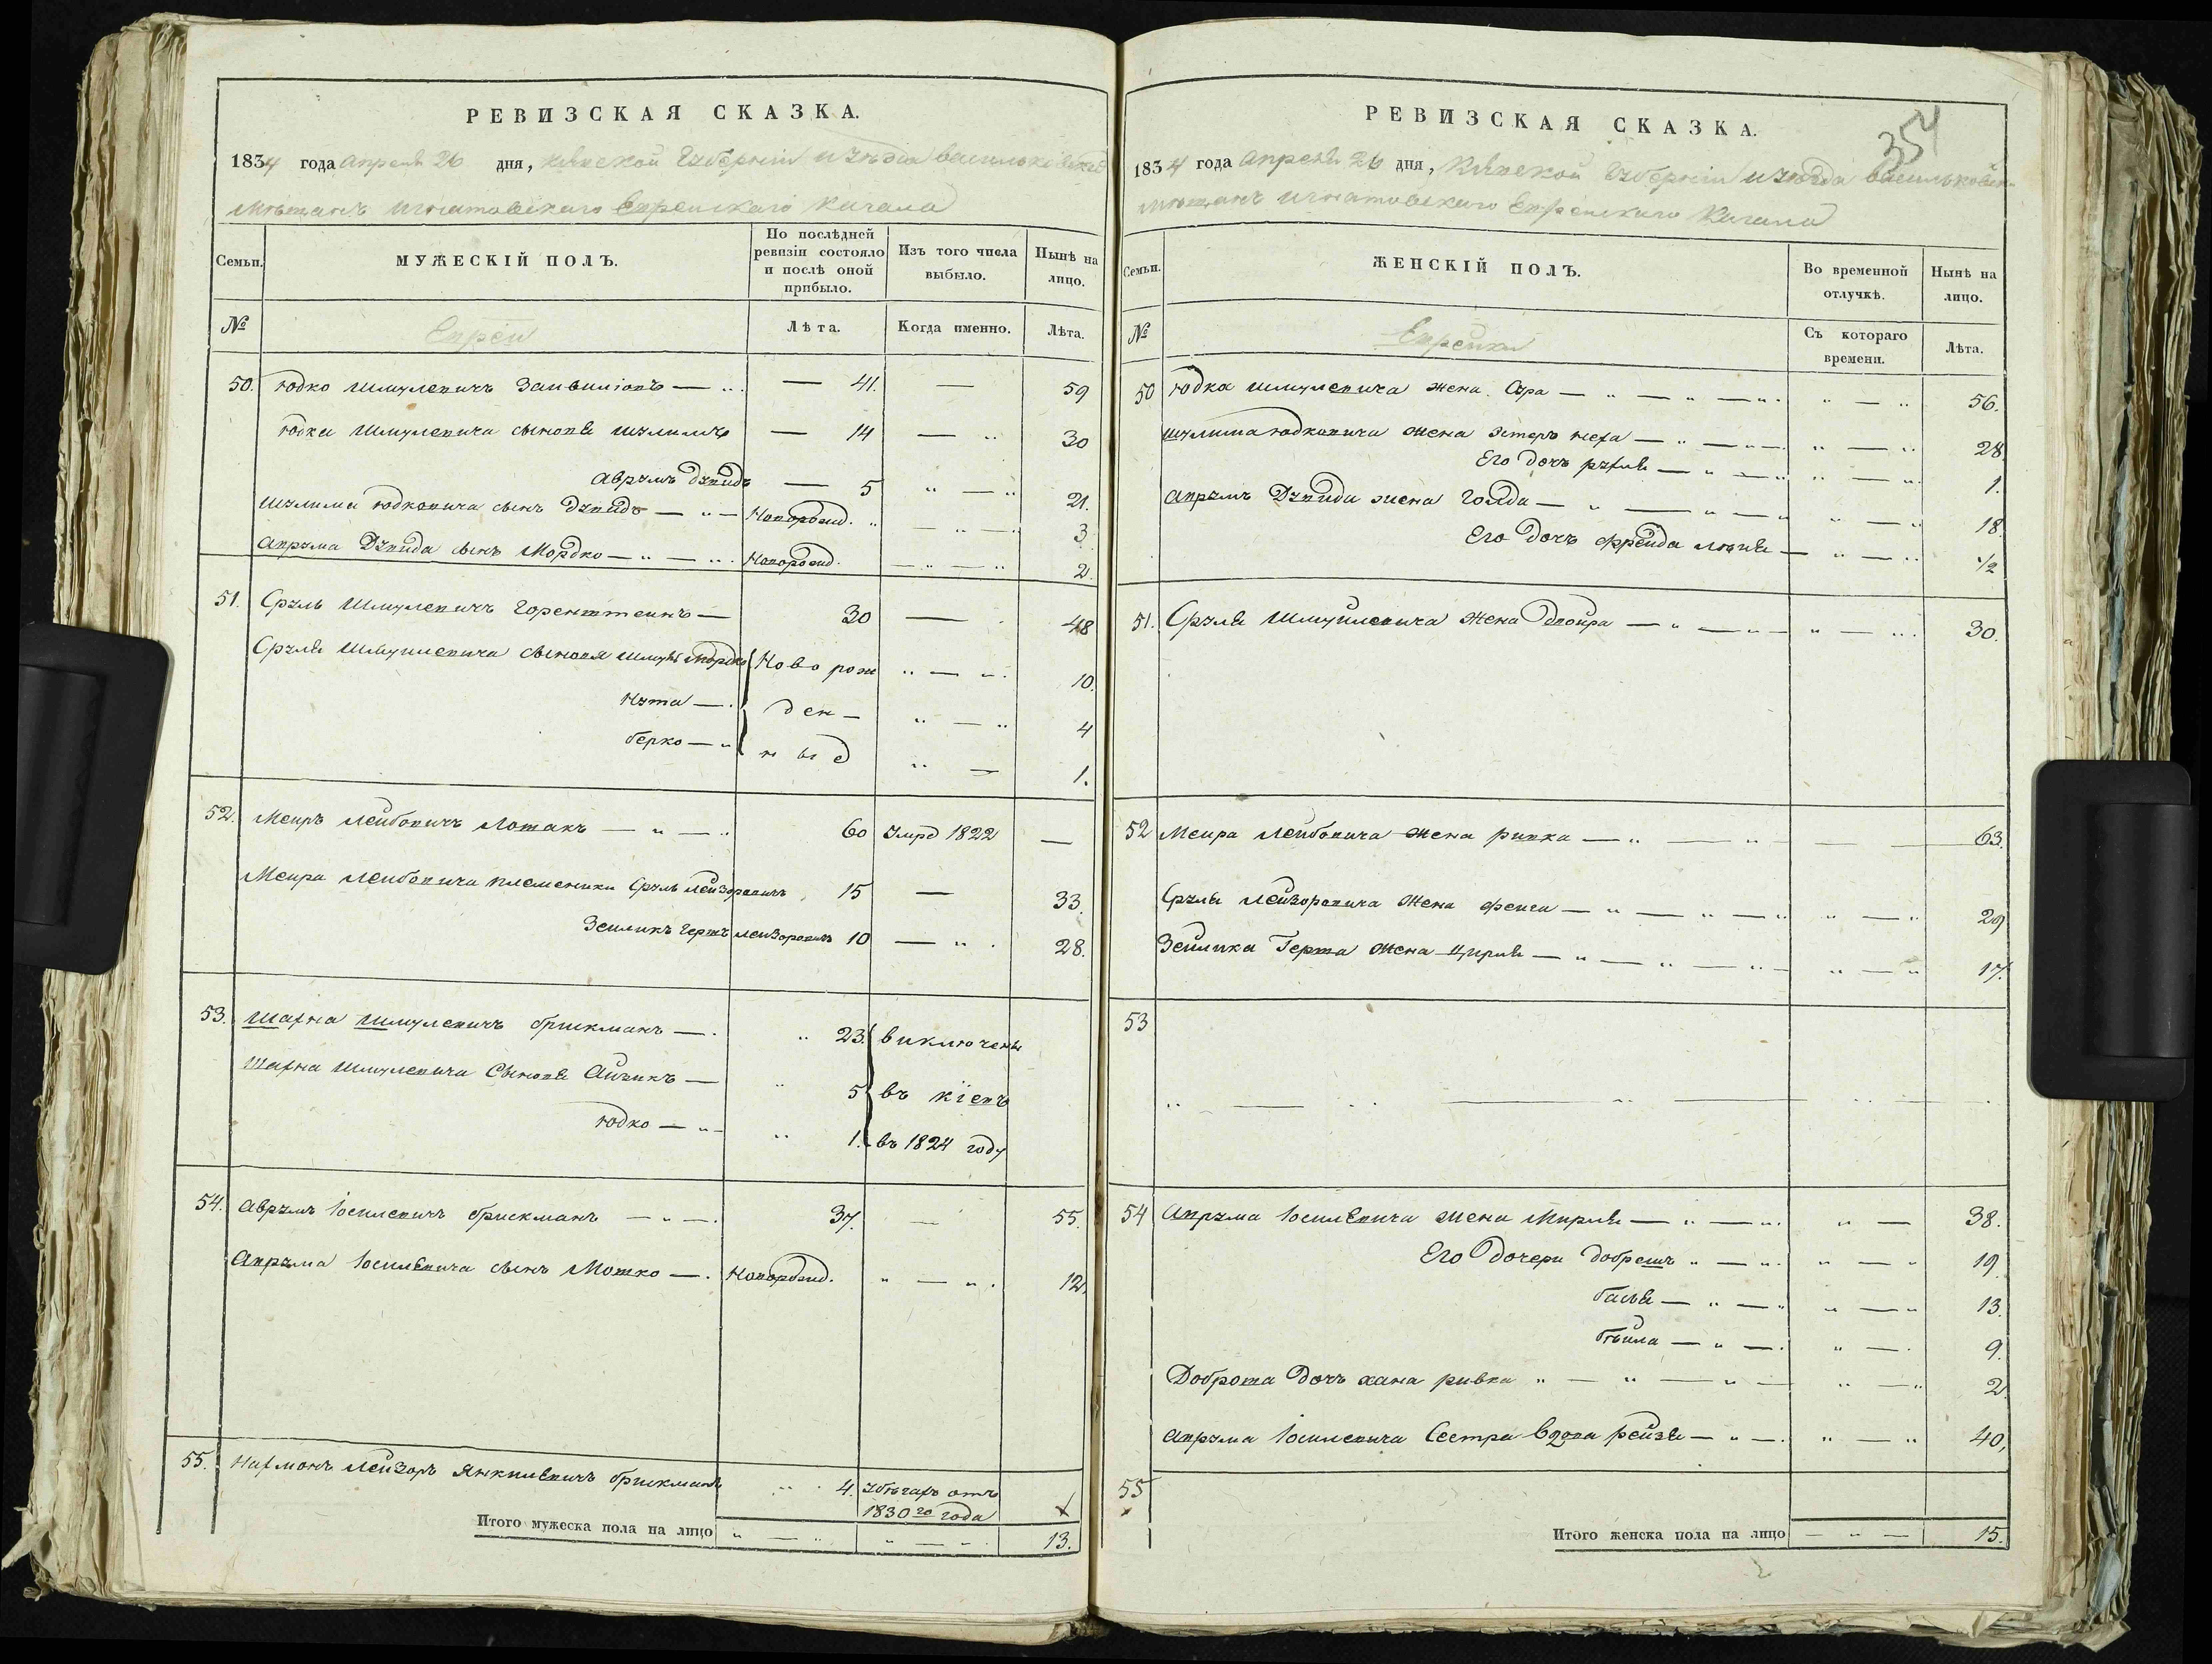 РЕВИЗСКАЯ СКАЗКА.
1834 года апреля 26 дня, Кіевской Губерніи уѣзда васильковскаго
Мѣщанъ игнатовскаго Еврейскаго Кагала
Семьи.
МУЖЕСКІЙ ПОЛЪ.
По послѣдней ревизіи состояло и послѣ оной прибыло.
Изъ того числа выбыло.
Нынѣ на лицо.
№
Евреи
Лѣта.
Когда именно.
Лѣта.
50. Юдко Шмулевичъ — 41. — 59
Юдки Шмулевича сыновья Шулимъ — 14 — 30
Аврумъ Дувидъ — 5 — 21.
Шулима Юдковича сынъ Дувидъ — Новорожд. — 3
Аврума Дувида сынъ Мордко — Новорожд. — 2.
51. Сруль Шмулевичъ Горенштеинъ — 30 — 48
Сруля Шмулевича сыновя Шмуль Мордко Ново рож — 10.
Нута — ден — 4
берко — ныé — 1.
52. Меиръ Лейбовичъ Лотакъ — 60 умре 1822 —
Меира Лейбовича племеники Сруль Лейзоровичъ 15 — 33.
Зеиликъ Гершъ Лейзоровичъ 10 — 28.
53. Шахна Шмулевичъ брискманъ — 23. виключены
Шахна Шмулевича Сыновья Айзикъ — 5 въ кіевъ
Юдко — 1. въ 1824 году
54. Аврумъ Іосилевичъ брискманъ — 37. — 55.
Аврума Іосилевича сынъ Мошко — Новорожд. — 12.
55. Нахманъ Лейзоръ Янкилевичъ брискманъ 4. убѣгахъ отъ
1830го года
Итого мужеска пола на лицо — 13.
354
РЕВИЗСКАЯ СКАЗКА.
1834 года апреля 26 дня, Кіевской Губерніи уѣзда васильковск
Мѣщанъ игнатовскаго Еврейскаго Кагала
Семьи.
ЖЕНСКІЙ ПОЛЪ.
Во временной отлучкѣ.
Нынѣ на лицо.
№
Еврейки
Съ котораго времени.
Лѣта.
50 Юдка Шмулевича жена Сура — 56.
Шулима Юдковича жена Эстеръ неха — 28
Его дочъ рухля — 1.
Аврумъ Дувида жена Голда — 18
Его Дочъ Фрейда — 1/2
51. Сруля Шмуилевича жена Двойра — 30.
52 Меира Лейбовича жена ривка — 63.
Сруля Лейзоровича жена фейга — 29
Зейлика Герша жена Цирля — 17.
53
54 Аврума Іосилевича жена Мирля — 38.
Его Дочери добрешъ — 19
басья — 13.
бѣйла — 9.
Доброша дочъ хана ривка — 2.
Аврума Іосилевича Сестра вдова рейзя — 40,
55
Итого женска пола на лицо — 15.